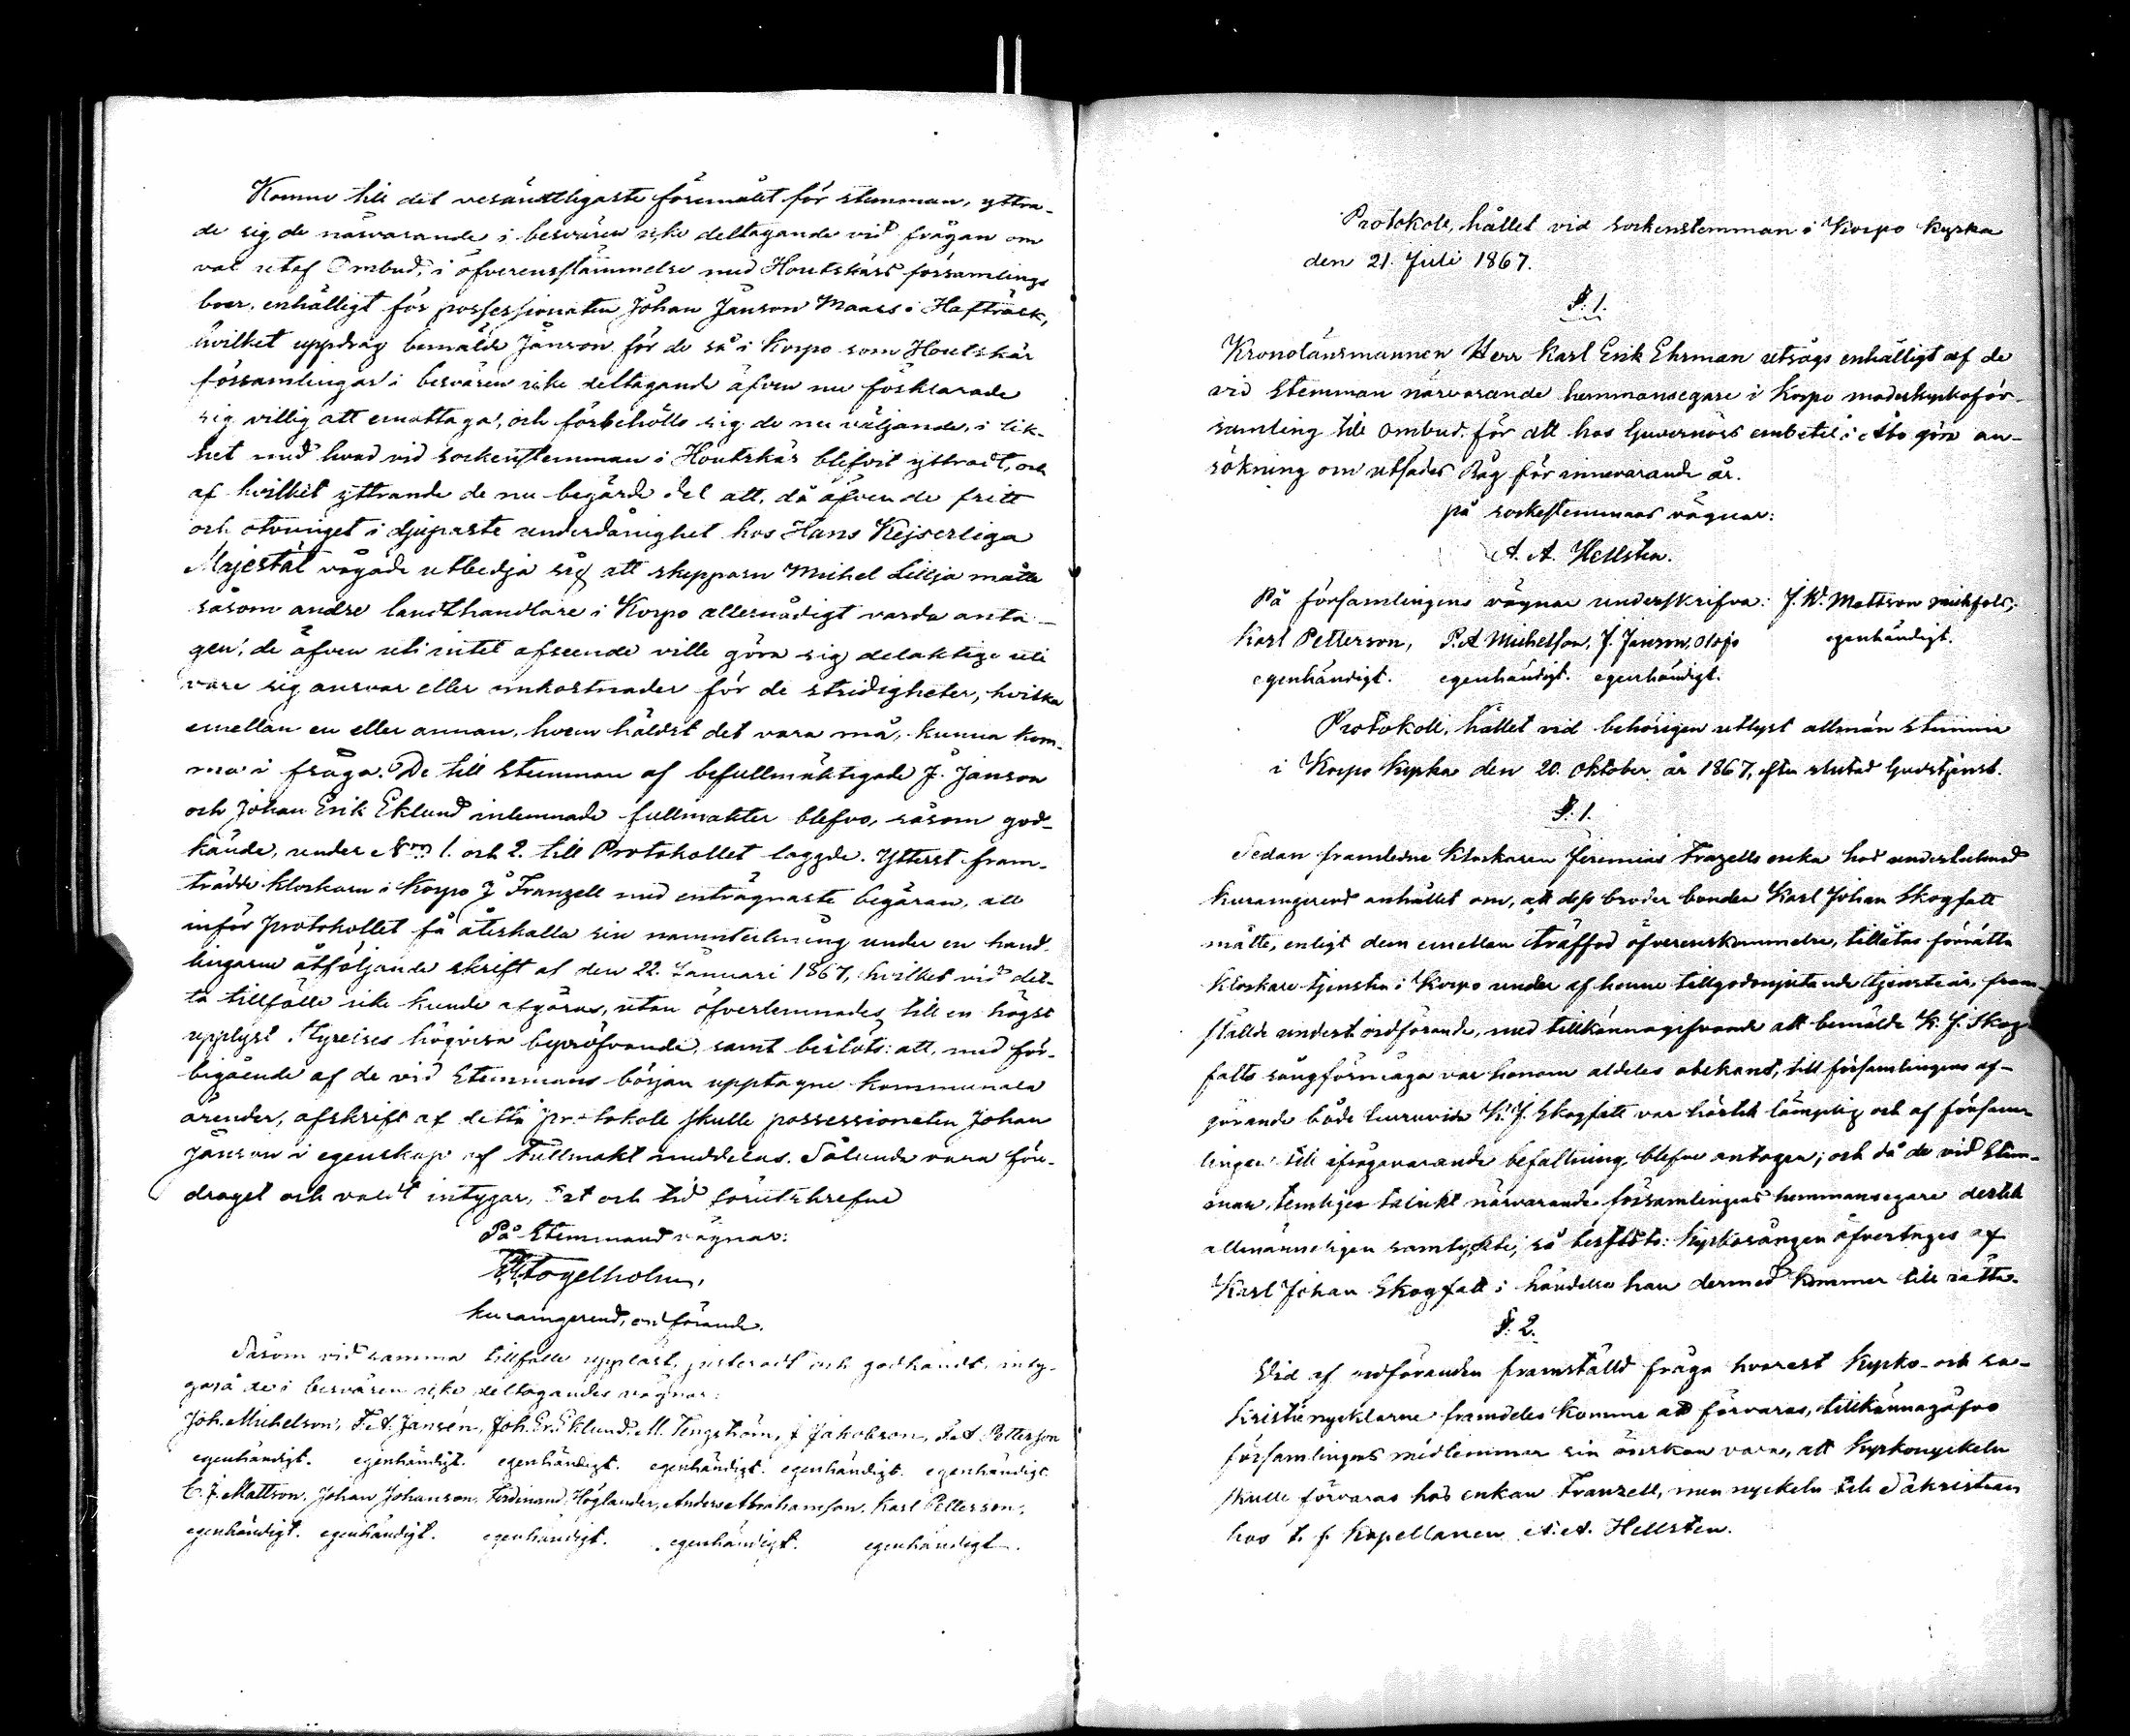 Komne till det vesändtligaste föremålet för stemman, yttra-
de sig de närvarande i besvären icke deltagande vid frågan om
val utaf Ombud, i öfverensstämmelse med Houtskärs församlings
boer, enhälligt för possessionaten Johan Janson Maass i Hafträsk,
hvilket uppdrag bemälde Janson för de så i Korpo som Houtskär
församlingar i besvären icke deltagande äfven nu förklarade
sig villig att emottaga, och förbehöllo sig de nu väljande, i lik-
het med hvad vid sockenstemman i Houtskär blifvit yttradt, och
af hvilket yttrande de nu begärde del att, då äfven de fritt
och otvunget i djupaste underdånighet hos Hans Kejserliga
Majestät vågade utbedja sig att skepparn Michel Lillja måtte
såsom andre landthandlare i Korpo allernådigt varda anta-
gen, de äfven uti intet afseende ville göra sig delaktige uti
vare sig ansvar eller omkostnader för de stridigheter, hvilka
emellan en eller annan, hvem häldst det vara må, kunna kom-
ma i fråga. De till stemman af befullmäktigade J. Janson
och Johan Erik Eklund inlemnade fullmakter blefvo, såsom god-
kände, under N:ris 1. och 2. till Protokollet laggde. Ytterst fram-
trädde klockarn i Korpo J. Franzell med enträgnaste begäran, att
inför protokollet få återkalla sin namnteckning under en hand-
lingarne åtföljande skrift af den 22. Januari 1867, hvilket vid det-
ta tillfälle icke kunde afgöras, utan öfverlemnades till en högst
upplyst Styrelses högvisa bepröfvande, samt beslöts: att, med för-
bigående af de vid Stemmans början upptagne kommunala
ärender, afskrift af detta protokoll skulle possessionaten Johan
Janson i egenskap af fullmakt meddelas. Sålunda vara för-
draget och valdt intygar, Ort och tid förutskrefne
På Stemmans vägnar:
Fogelholm,
kuramgerend, ordförande.
Såsom vid samma tillfälle uppläst, justeradt och godkändt, inty-
ga på de i besvären icke deltagandes vägnar:
Joh. Michelson, F. A. Jansén, Joh. Er. Eklund, M. Tengström, J. Jakobson, F. A. Petterson
egenhändigt. egenhändigt. egenhändigt. egenhändigt. egenhändigt. egenhändigt.
C. J. Mattson, Johan Johanson, Ferdinand Höglander, Anders Abrahamson, Karl Petterson,
egenhändigt. egenhändigt. egenhändigt. egenhändigt. egenhändigt.
Protokoll, hållet vid sockenstemman i Korpo kyrka
den 21. Juli 1867.
§. 1.
Kronolänsmannen Herr Karl Erik Ehrman utsågs enhälligt af de
vid Stemman närvarande hemmansegare i Korpo moderkyrkoför-
samling till Ombud för att hos Guvernörs embetet i Åbo göra an-
sökning om utsädes Råg för innevarande år.
på sockestemmans vägnar:
A. A. Hellsten.
På församlingens vägnar underskrifva: J. W. Mattson
Karl Petterson, P. A Michelson, J. Janson,
egenhändigt.
egenhändigt. egenhändigt. egenhändigt.
Protokoll, hållet vid behörigen utlyst allmän stemma
i Korpo kyrka den 20. Oktober år 1867, efter slutad Gudstjenst.
§. 1.
Sedan framledne klockaren Jeremias Franzells enka hos undertecknad
kuramgerend anhållet om, att dess broder bonden Karl Johan Skogfalt
måtte, enligt dem emellan träffad öfverenskommelse, tillåtas förrätta
klockare tjensten i Korpo under af henne tillgodonjutande tjensteår, fram-
ställde undert. ordförande, med tillkännagifvande att bemälde K. J. Skog-
falts sångförmåga var honom aldeles obekant, till församlingens af-
görande både huruvida K. J. Skogfalt var härtill lämplig och af försam-
lingen till ifrågavarande befattning blefve antagen; och då de vid Stem-
man, temligen talrikt närvarande församlingens hemmansegare dertill
allmänneligen samtyckte, så beslöts: kyrkosången öfvertages af
Karl Johan Skogfalt i händelse han dermed kommer till rätta.
§. 2.
Vid af ordföranden framställd fråga hvarest kyrko- och sa-
kristie nycklarne framdeles komme att förvaras, tillkännagåfvo
församlingens medlemmar sin önskan vara, att kyrkonyckeln
skulle förvaras hos enkan Franzell, men nyckeln till Sakristian
hos t. f. kapellanen A. A. Hellsten.